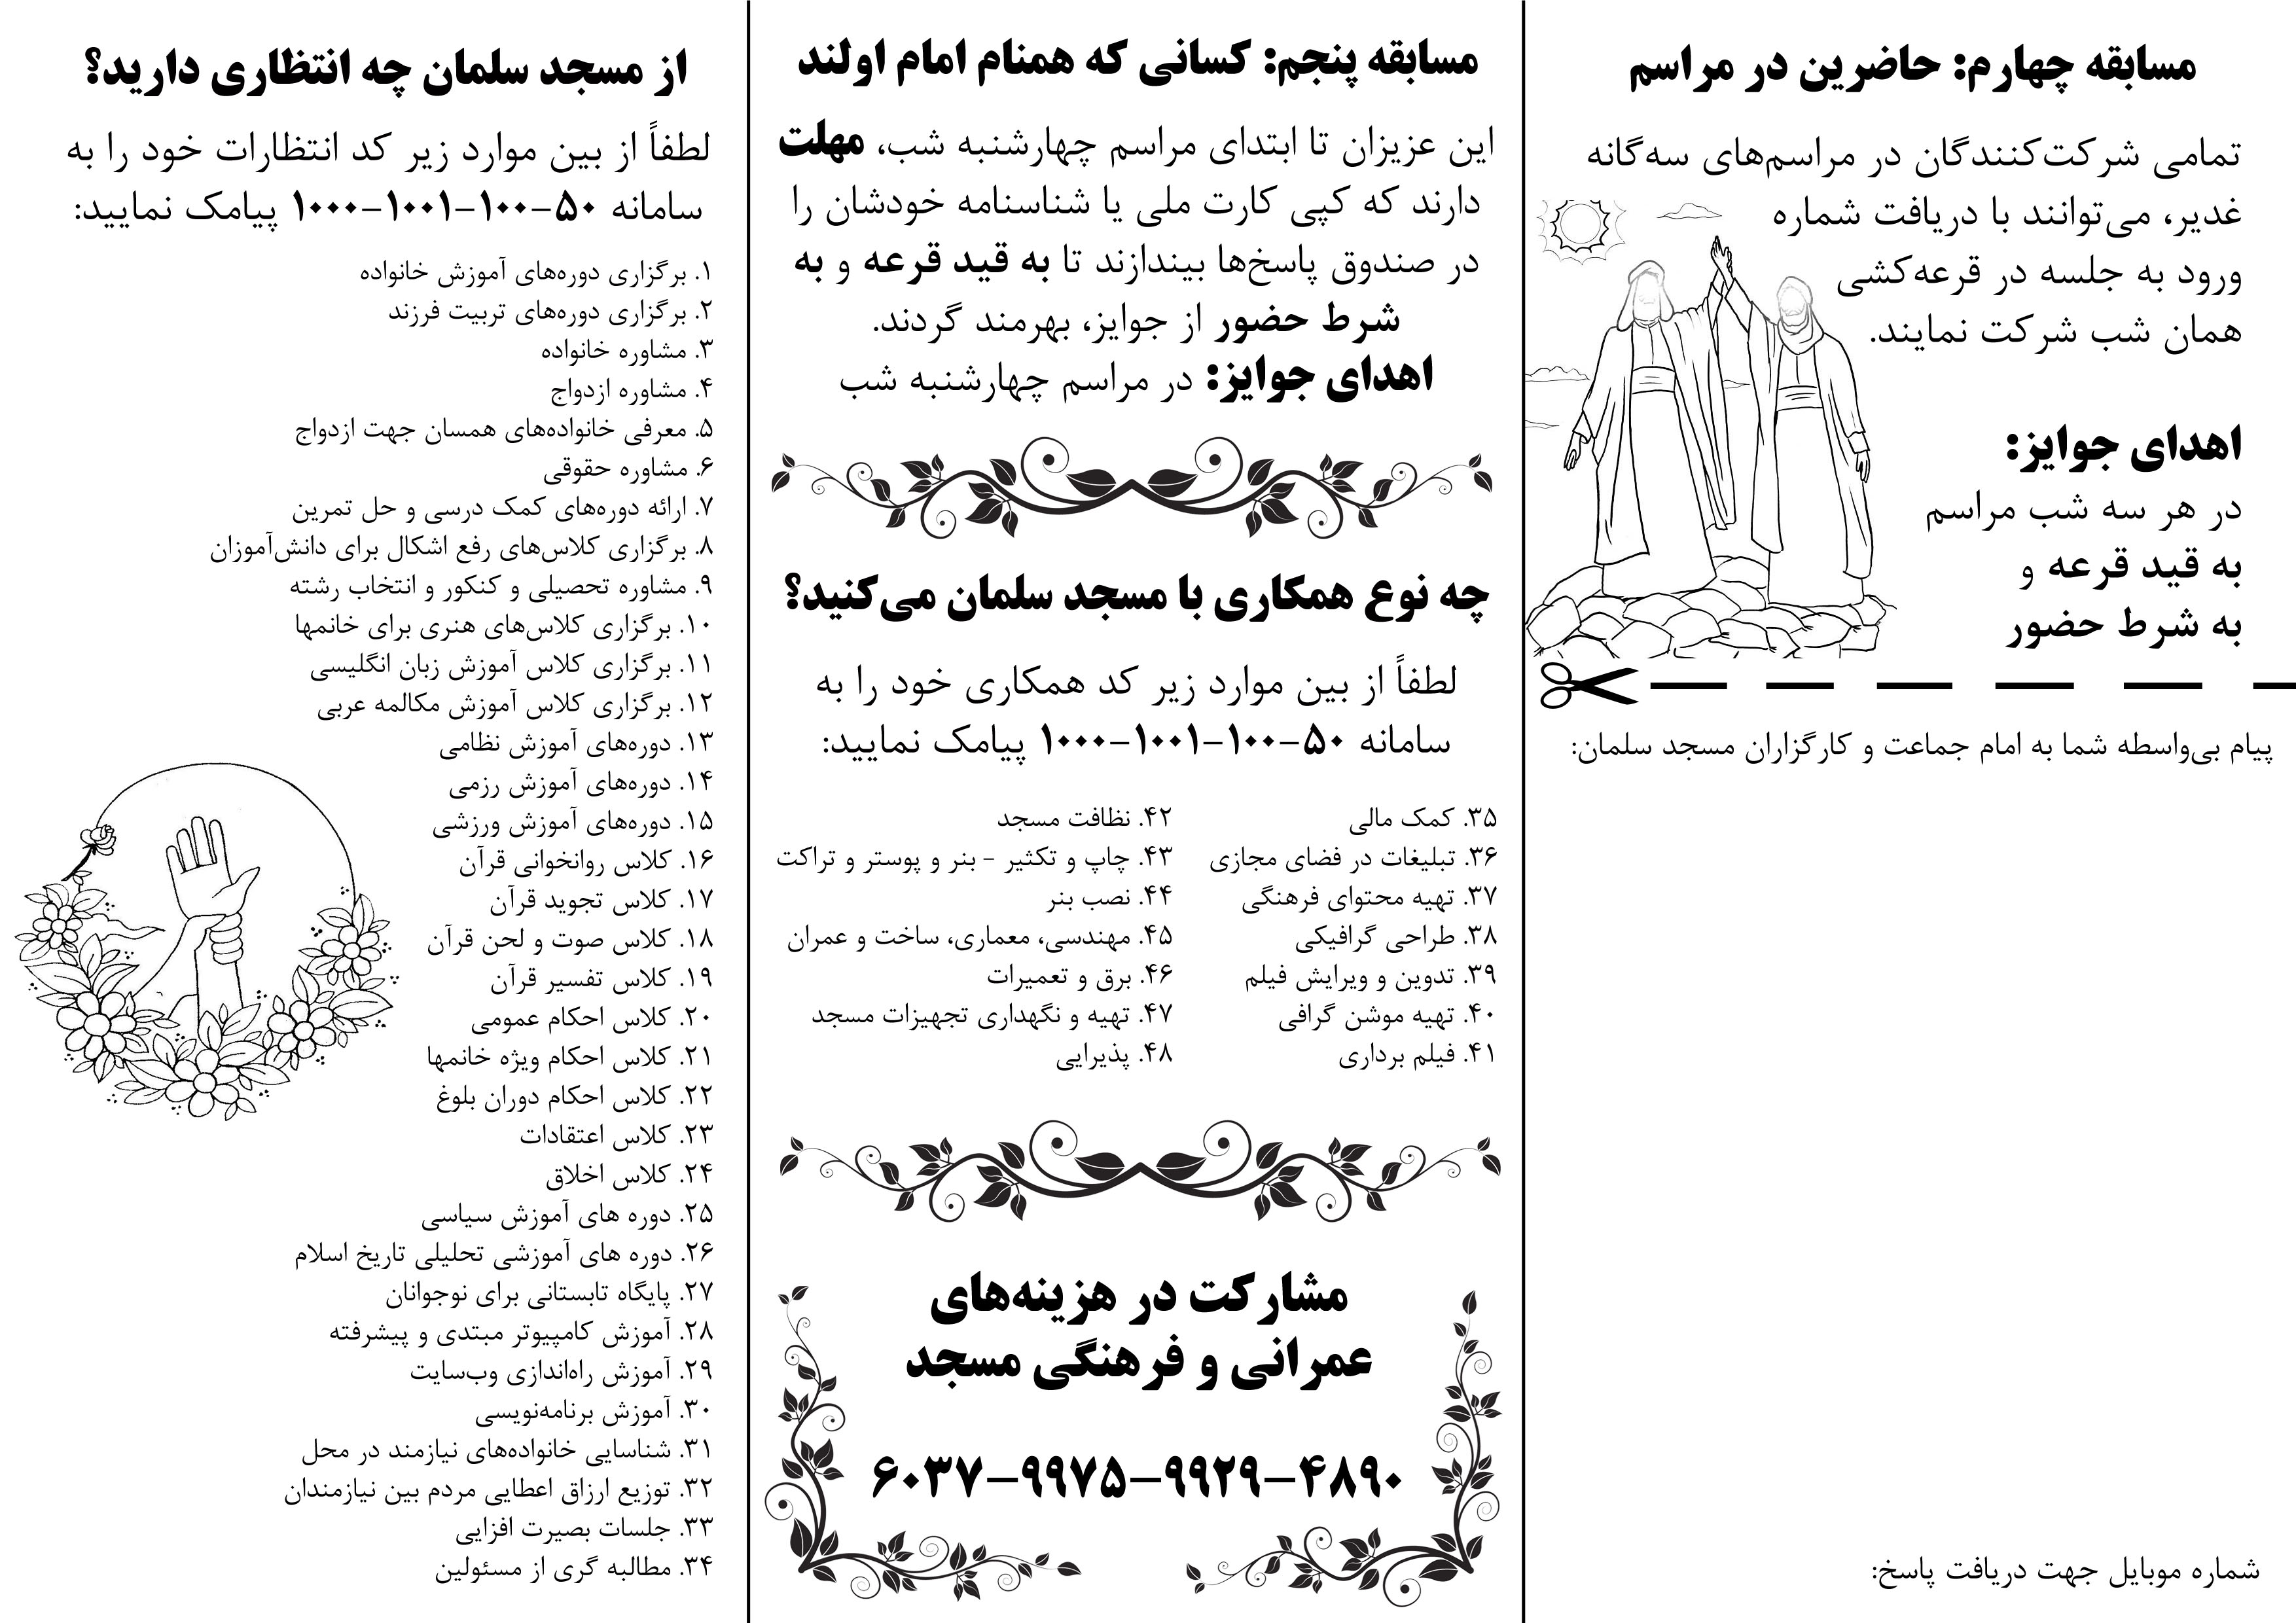 مسابقه چهارم: حاضرین در مراسم
تمامی شرکت‌کنندگان در مراسم‌های سه‌گانه
غدیر، می‌توانند با دریافت شماره
ورود به جلسه در قرعه‌کشی
همان شب شرکت نمایند.
اهدای جوایز:
در هر سه شب مراسم
به قید قرعه و
به شرط حضور
پیام بی‌واسطه شما به امام جماعت و کارگزاران مسجد سلمان:
شماره موبایل جهت دریافت پاسخ:
مسابقه پنجم: کسانی که همنام امام اولند
این عزیزان تا ابتدای مراسم چهارشنبه شب، مهلت
دارند که کپی کارت ملی یا شناسنامه خودشان را
در صندوق پاسخ‌ها بیندازند تا به قید قرعه و به
شرط حضور از جوایز، بهرمند گردند.
اهدای جوایز: در مراسم چهارشنبه شب
چه نوع همکاری با مسجد سلمان می‌کنید؟
لطفاً از بین موارد زیر کد همکاری خود را به
سامانه ۵۰-۱۰۰-۱۰۰۱-۱۰۰۰ پیامک نمایید:
۳۵. کمک مالی
۳۶. تبلیغات در فضای مجازی
۳۷. تهیه محتوای فرهنگی
۳۸. طراحی گرافیکی
۳۹. تدوین و ویرایش فیلم
۴۰. تهیه موشن گرافی
۴۱. فیلم برداری
۴۲. نظافت مسجد
۴۳. چاپ و تکثیر - بنر و پوستر و تراکت
۴۴. نصب بنر
۴۵. مهندسی، معماری، ساخت و عمران
۴۶. برق و تعمیرات
۴۷. تهیه و نگهداری تجهیزات مسجد
۴۸. پذیرایی
مشارکت در هزینه‌های
عمرانی و فرهنگی مسجد
۶۰۳۷-۹۹۷۵-۹۹۲۹-۴۸۹۰
از مسجد سلمان چه انتظاری دارید؟
لطفاً از بین موارد زیر کد انتظارات خود را به
سامانه ۵۰-۱۰۰-۱۰۰۱-۱۰۰۰ پیامک نمایید:
۱. برگزاری دوره‌های آموزش خانواده
۲. برگزاری دوره‌های تربیت فرزند
۳. مشاوره خانواده
۴. مشاوره ازدواج
۵. معرفی خانواده‌های همسان جهت ازدواج
۶. مشاوره حقوقی
۷. ارائه دوره‌های کمک درسی و حل تمرین
۸. برگزاری کلاس‌های رفع اشکال برای دانش‌آموزان
۹. مشاوره تحصیلی و کنکور و انتخاب رشته
۱۰. برگزاری کلاس‌های هنری برای خانمها
۱۱. برگزاری کلاس آموزش زبان انگلیسی
۱۲. برگزاری کلاس آموزش مکالمه عربی
۱۳. دوره‌های آموزش نظامی
۱۴. دوره‌های آموزش رزمی
۱۵. دوره‌های آموزش ورزشی
۱۶. کلاس روانخوانی قرآن
۱۷. کلاس تجوید قرآن
۱۸. کلاس صوت و لحن قرآن
۱۹. کلاس تفسیر قرآن
۲۰. کلاس احکام عمومی
۲۱. کلاس احکام ویژه خانمها
۲۲. کلاس احکام دوران بلوغ
۲۳. کلاس اعتقادات
۲۴. کلاس اخلاق
۲۵. دوره های آموزش سیاسی
۲۶. دوره های آموزشی تحلیلی تاریخ اسلام
۲۷. پایگاه تابستانی برای نوجوانان
۲۸. آموزش کامپیوتر مبتدی و پیشرفته
۲۹. آموزش راه‌اندازی وب‌سایت
۳۰. آموزش برنامه‌نویسی
۳۱. شناسایی خانواده‌های نیازمند در محل
۳۲. توزیع ارزاق اعطایی مردم بین نیازمندان
۳۳. جلسات بصیرت افزایی
۳۴. مطالبه گری از مسئولین